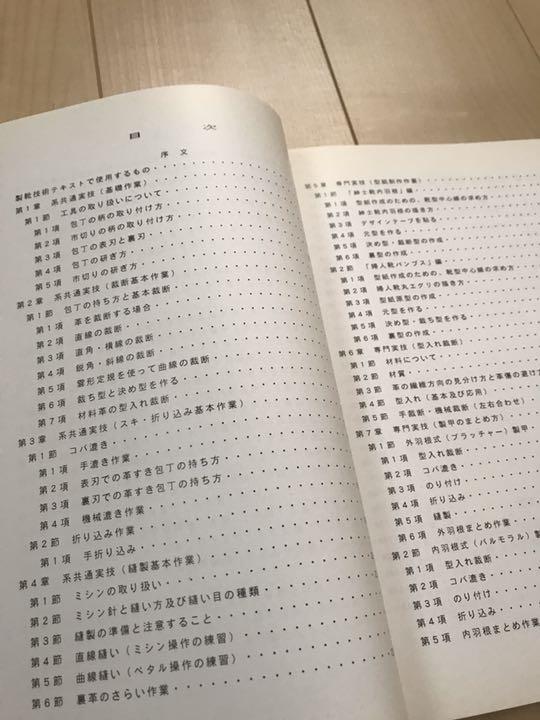 目次
序文
製靴技術テキストで使用するもの
第1章 系共通実技(基礎作業)
第1節 工具の取り扱いについて
第1項 包丁の柄の取り付け方
第2項 市切りの柄の取り付け方
第3項 包丁の表刃と裏刃
第4項 包丁の研ぎ方
第5項 市切りの研ぎ方
第2章 系共通実技(裁断基本作業)
第1節 包丁の持ち方と基本裁断
第1項 革を裁断する場合
第2項 直線の裁断
第3項 直角・横線の裁断
第4項 鋭角・斜線の裁断
第5項 雲形定規を使って曲線の裁断
第6項 裁ち型と決め型を作る
第7項 材料革の型入れ裁断
第3章 系共通実技(スキ・折り込み基本作業)
第1節 コバ漉き
第1項 手漉き作業
第2項 表刃での革すき包丁の持ち方
第3項 裏刃での革すき包丁の持ち方
第4項 機械漉き作業
第2節 折り込み作業
第1項 手折り込み
第4章 系共通実技(縫製基本作業)
第1節 ミシンの取り扱い
第2節 ミシン針と縫い方及び縫い目の種類
第3節 縫製の準備と注意すること
第4節 直線縫い(ミシン操作の練習)
第5節 曲線縫い(ペタル操作の練習)
第6節 裏革のさらい作業
第5章 専門実技(型紙制作作業)
第1節 「紳士靴内羽根」編
第1項 型紙作成のための、靴型中心線の求め方
第2項 紳士靴内羽根の描き方
第3項 デザインテープを貼る
第4項 元型を作る
第5項 決め型・裁断型の作成
第6項 裏型の作成
第2節 「婦人靴パンプス」編
第1項 型紙作成のための、靴型中心線の求め方
第2項 婦人靴丸エグリの描き方
第3項 型紙原型の作成
第4項 元型を作る
第5項 決め型・裁ち型の作成
第6項 裏型の作成
第6章 専門実技(型入れ裁断)
第1節 材料について
第2節 材質
第3節 革の繊維方向の見分け方と革傷の避け方
第4節 型入れ(基本及び応用)
第5節 手裁断・機械裁断(左右合わせ)
第7章 専門実技(製甲のまとめ方)
第1節 外羽根式(ブラッチャー)製甲
第1項 型入れ裁断
第2項 コバ漉き
第3項 のり付け
第4項 折り込み
第5項 縫製
第6項 外羽根まとめ作業
第2節 内羽根式(バルモラル)製
第1項 型入れ裁断
第2項 コバ漉き
第3項 のり付け
第4項 折り込み
第5項 内羽根まとめ作業